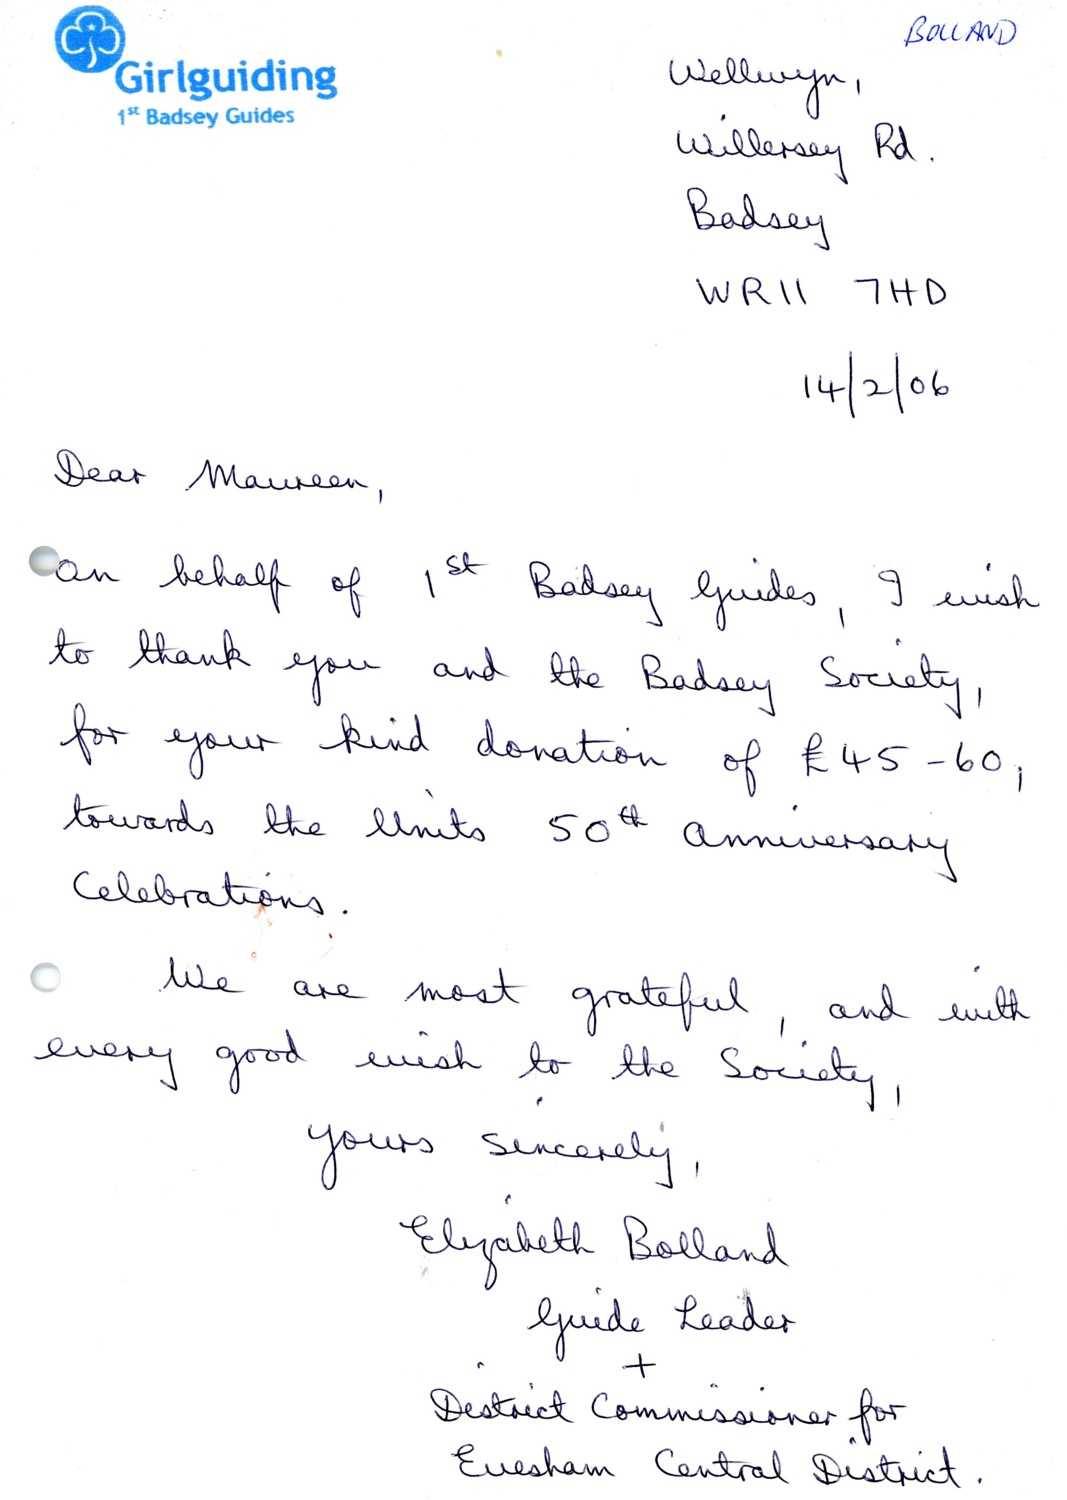 BOLLAND
Girlguiding
1st Badsey Guides
Wellwyn,
Willersey Rd.
Badsey
WR11 7HD
14/2/06
Dear Maureen,
On behalf of 1st Badsey Guides, I wish
to thank you and the Badsey Society,
for your kind donation of £45-60,
towards the Units 50th anniversary
Celebrations.
We are most grateful, and with
every good wish to the Society,
yours sincerely,
Elizabeth Bolland
Guide Leader
+
District Commissioner for
Evesham Central District.